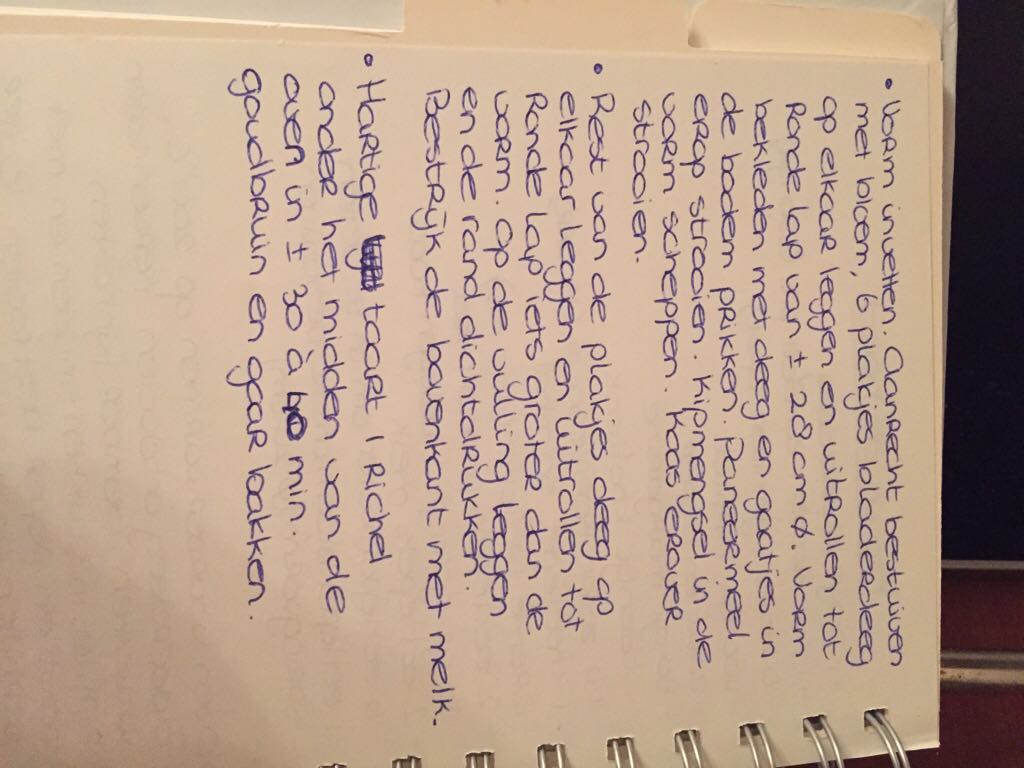 • Vorm invetten. Aanrecht bestuiven
met bloem, 6 plakjes bladerdeeg
op elkaar leggen en uitrollen tot
Ronde lap van ± 28 cm ø. Vorm
bekleden met deeg en gaatjes in
de bodem prikken. Paneermeel
erop strooien. Kipmengsel in de
vorm scheppen. Kaas erover
strooien.
• Rest van de plakjes deeg op
elkaar leggen en uitrollen tot
Ronde lap iets groter dan de
vorm. Op de vulling leggen
en de rand dichtdrukken.
Bestrijk de bovenkant met melk.
• Hartige taart 1 richel
onder het midden van de
oven in ± 30 à 40 min.
goudbruin en gaar bakken.